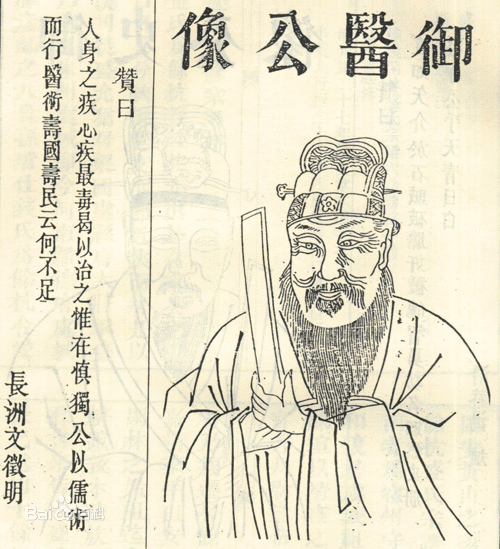 御醫公像
贊曰
人身之疾心疾最毒曷以治之惟在慎獨公以儒術
而行醫術壽國壽民云何不足
長洲文徵明
Bai百科